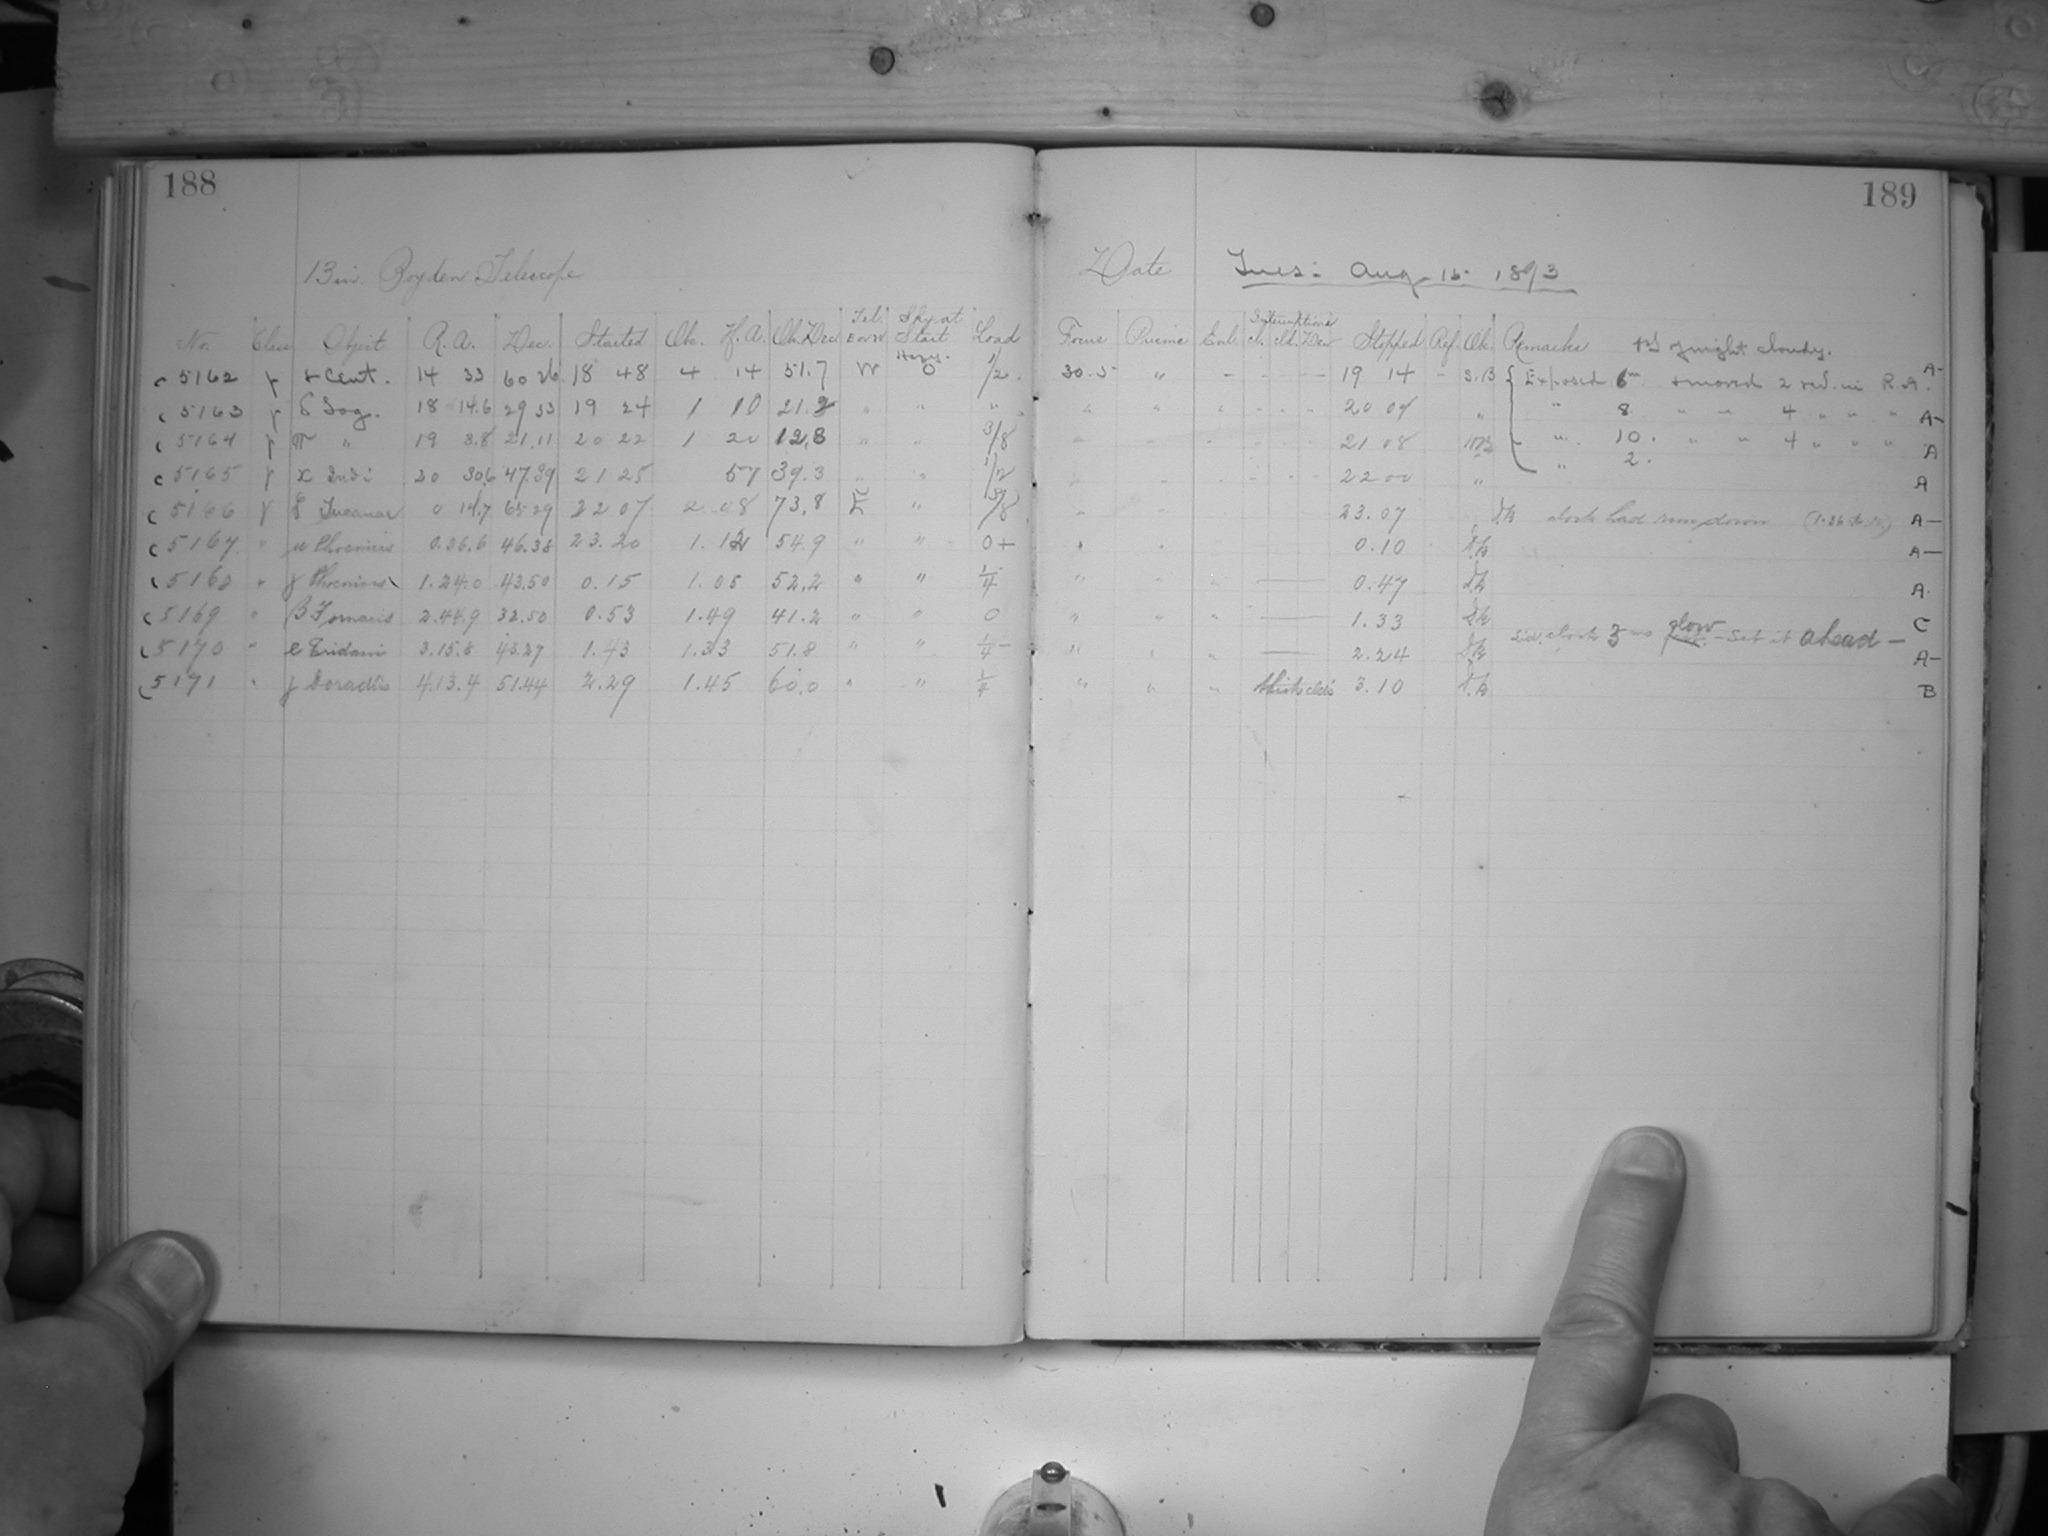 188
189
13 in. Boyden Telescope
Date Tues: Aug. 15. 1893
No. Class Object R.A. Dec. Started Ob. H.A. Ob. Dec. Tel. E or W Sky at Start Load Focus Prisms Enl. Interruptions Cl. Dew Stopped Ref. Ob. Remarks
Hazy.
5162 γ α Cent. 14 33 60 26 18 48 4 14 51.7 W 0 1/2 30.5 " - - - - 19 14 - S.B { Exposed 6m & moved 2 rev. in R.A. A-
5163 γ δ Sag. 18 14.6 29 53 19 24 1 10 21.2 " " " " " " - - - 20 07 " " 8 " " 4 " " " A-
5164 γ π " 19 3.8 21.11 20 22 1 20 12.8 " " 3/8 21 08 " 10. " " 4 " " " A
5165 γ α Indi 20 30.6 47.39 21 25 57 39.3 " " 1/2 - - - 22 00 " " 2. A
5166 γ ζ Tucanae 0 14.7 65 29 22 07 2 08 73.8 E " 23.07 clock had run down A-
5167 " Phoenicis 0.36.6 46.38 23.20 1.12 54.9 " " 0+ 0.10 A-
5168 " γ Phoenicis 1.24.0 43.50 0.15 1.05 52.2 " " 1/4 " 0.47 A
5169 " β Fornacis 2.44.9 32.50 0.53 1.49 41.2 " " 0 " " " 1.33 C
Sid. clock 3 slow - Set it ahead -
5170 " e Eridani 3.15.8 43.27 1.43 1.33 51.8 " " 1/4- " " " 2.24 A-
5171 " γ Doradûs 4.13.4 51.44 2.29 1.45 60.0 " " 1/4 " " " thick clds 3.10 B